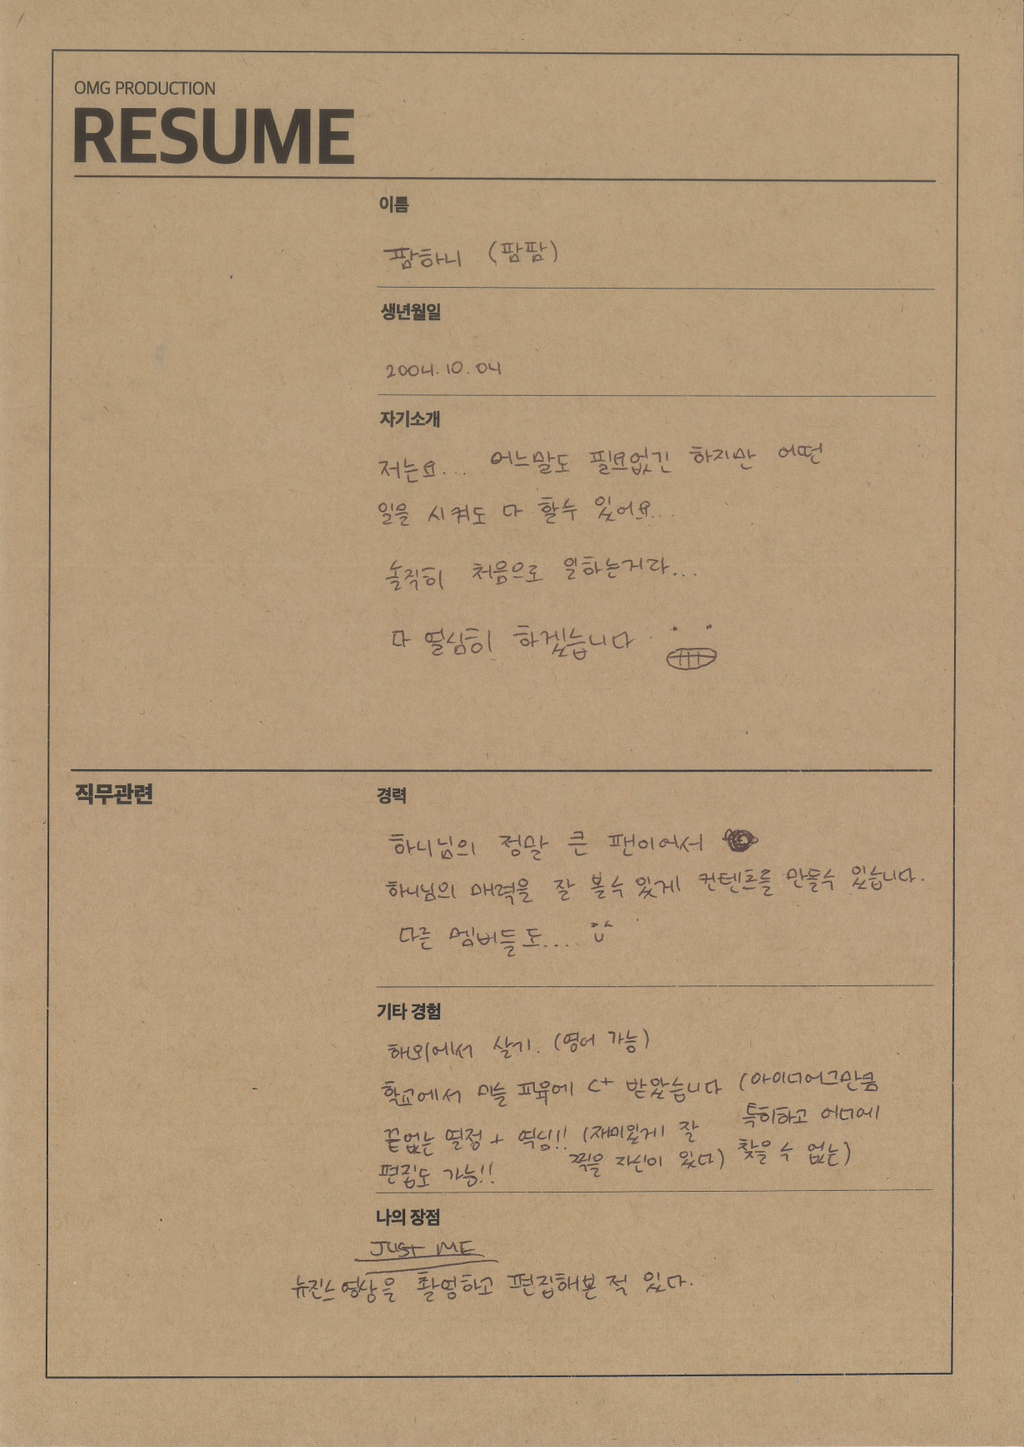 OMG PRODUCTION
RESUME
이름
팜하니 (팜팜)
생년월일
2004.10.04
자기소개
저는요... 어느말도 필요없긴 하지만 어떤
일을 시켜도 다 할수 있어요...
솔직히 처음으로 일하는거라...
다 열심히 하겠습니다
직무관련
경력
하니님의 정말 큰 팬이어서
하니님의 매력을 잘 볼수 있게 컨텐츠를 만들수 있습니다.
다른 멤버들도....
기타 경험
해외에서 살기. (영어 가능)
학교에서 미술 교육에 C+ 받았습니다 (아이디어그만큼
특히하고 어디에
찾을 수 없는)
끝없는 열정 + 역심!! (재미있게 잘
찍을 자신이 있다)
편집도 가능!!
나의 장점
JUST ME
뉴진스 영상을 촬영하고 편집해본 적 있다.